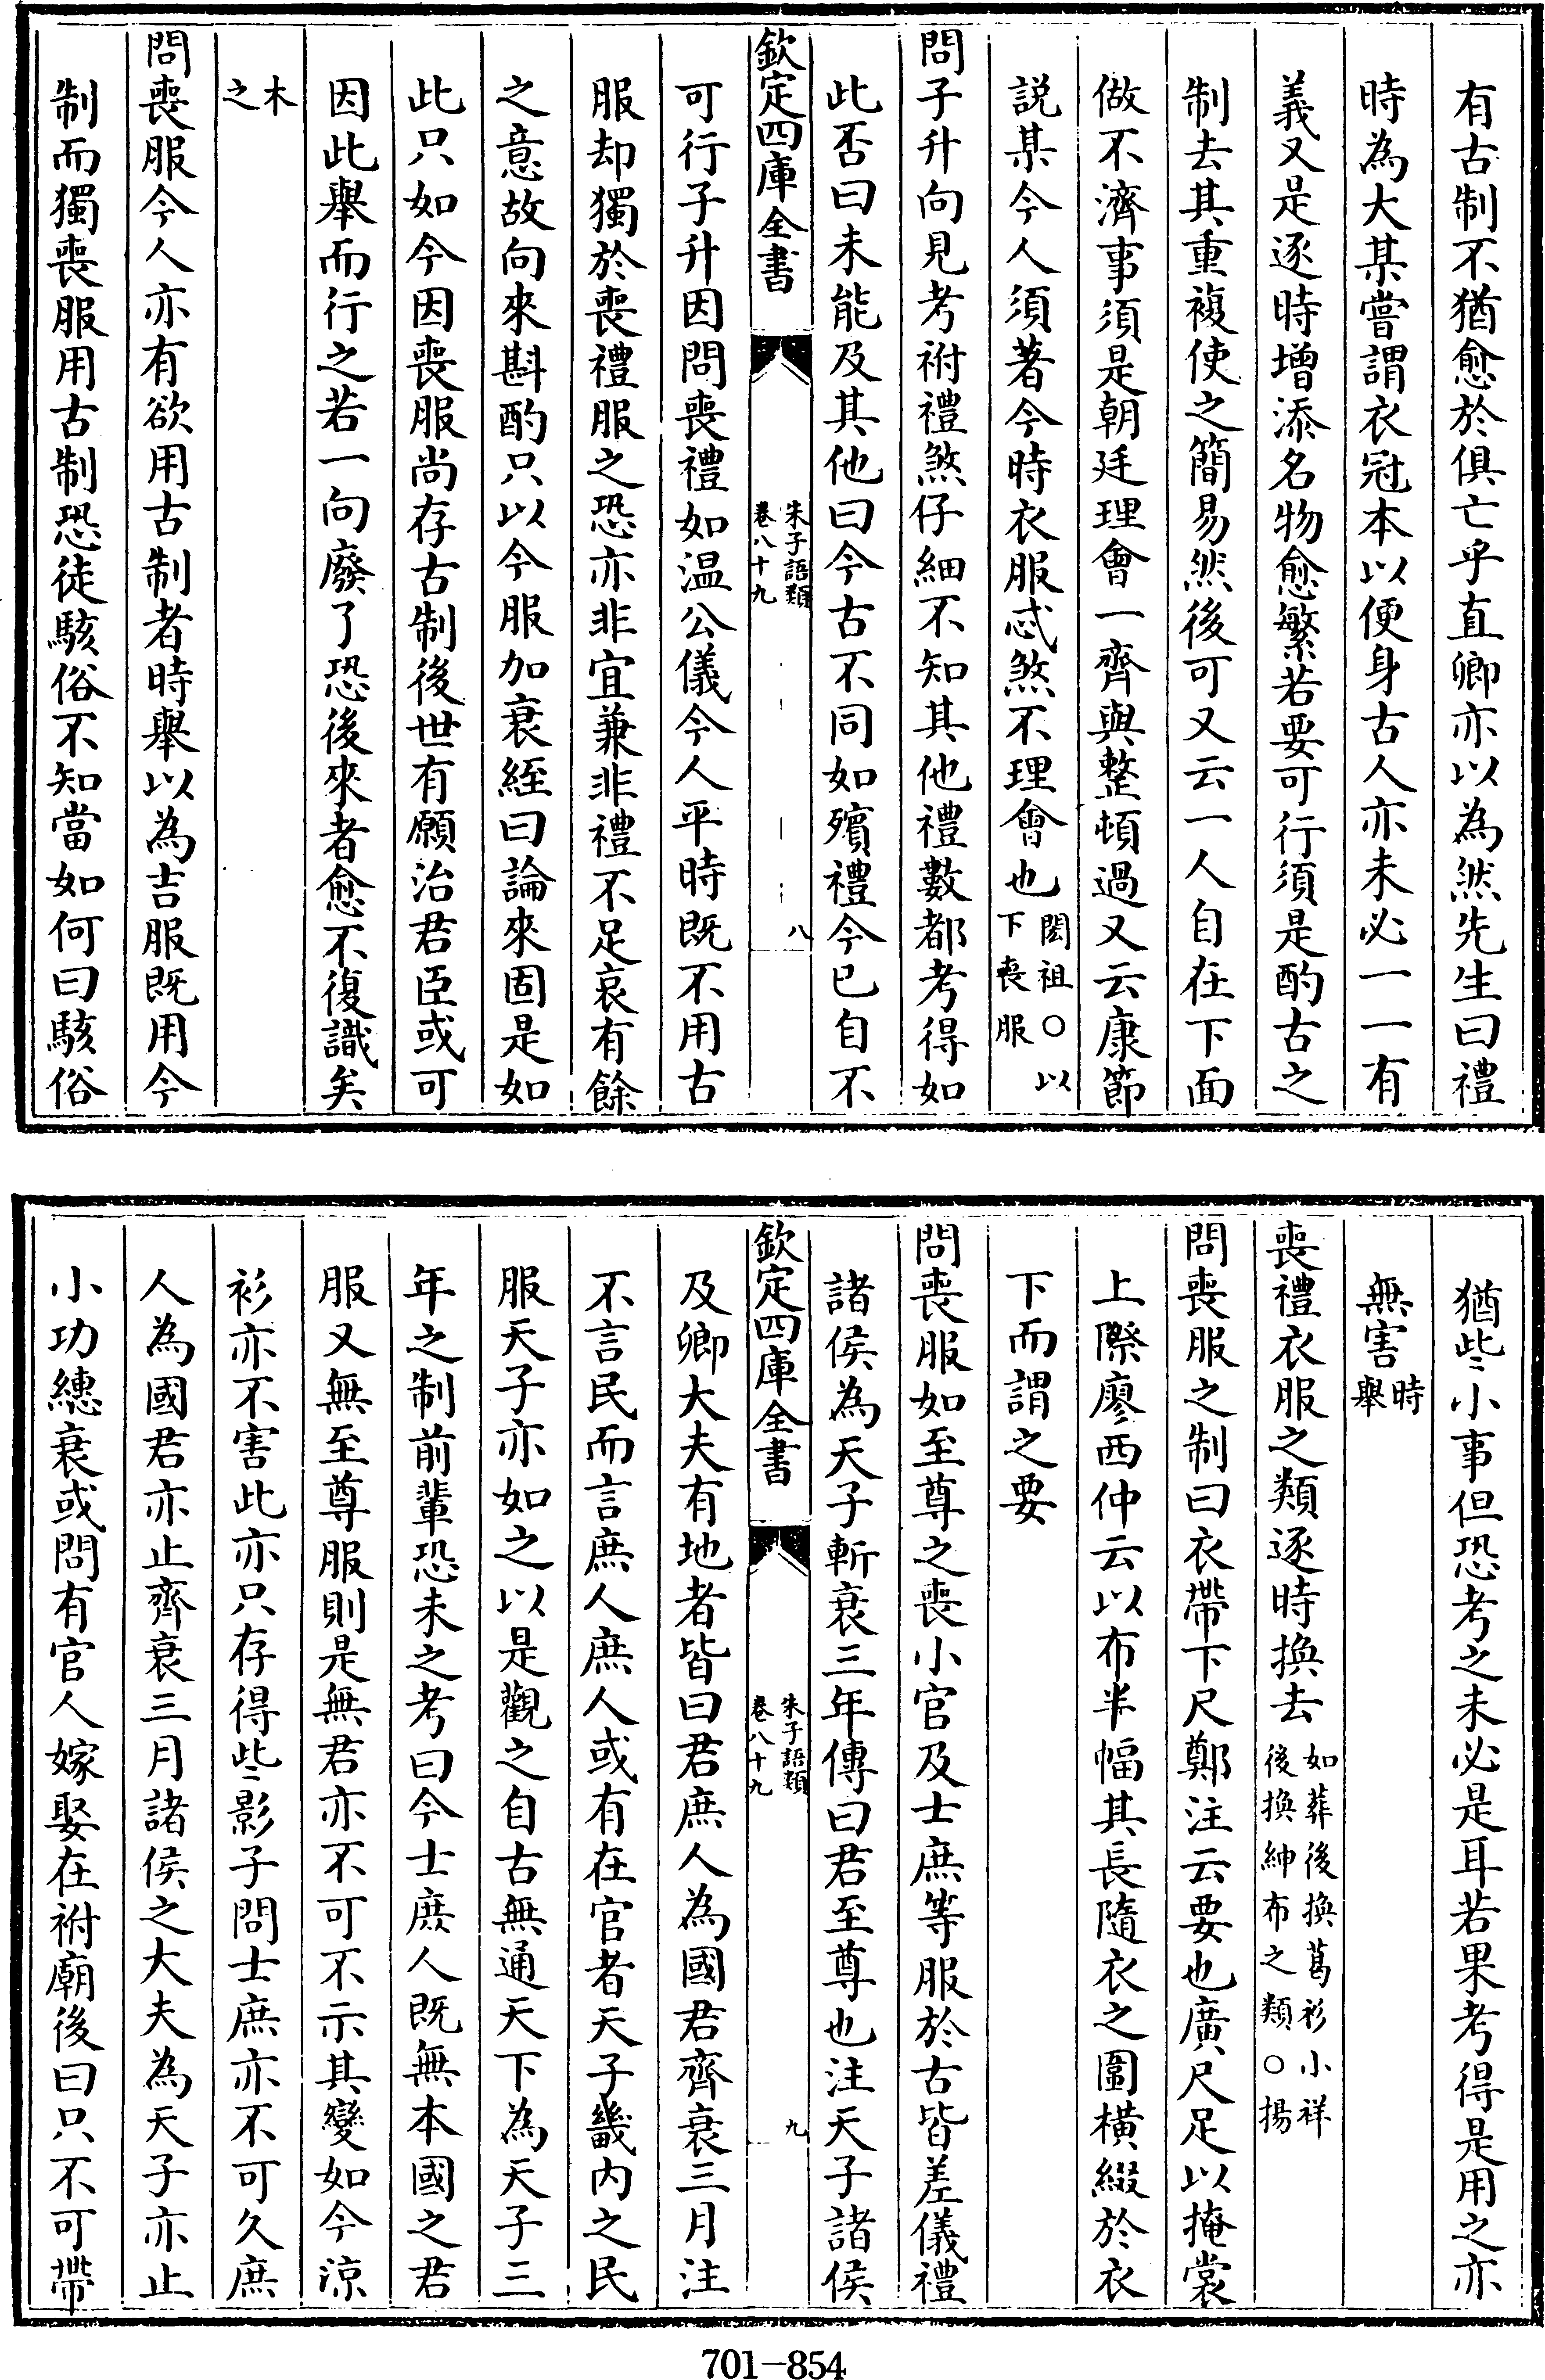 有古制不猶愈於俱亡乎直卿亦以為然先生曰禮
時為大某嘗謂衣冠本以便身古人亦未必一一有
義又是逐時增添名物愈繁若要可行須是酌古之
制去其重複使之簡易然後可又云一人自在下面
做不濟事須是朝廷理會一齊與整頓過又云康節
説某今人須著今時衣服忒煞不理會也閎祖○以下喪服
問子升向見考祔禮煞仔細不知其他禮數都考得如
此否曰未能及其他曰今古不同如殯禮今已自不
欽定四庫全書 朱子語類 卷八十九 八
可行子升因問喪禮如温公儀今人平時既不用古
服却獨於喪禮服之恐亦非宜兼非禮不足哀有餘
之意故向來斟酌只以今服加衰絰曰論來固是如
此只如今因喪服尚存古制後世有願治君臣或可
因此舉而行之若一向廢了恐後來者愈不復識矣
木之
問喪服今人亦有欲用古制者時舉以為吉服既用今
制而獨喪服用古制恐徒駭俗不知當如何曰駭俗
猶些小事但恐考之未必是耳若果考得是用之亦
無害時舉
喪禮衣服之類逐時換去如葬後換葛衫小祥後換紳布之類○揚
問喪服之制曰衣帶下尺鄭注云要也廣尺足以掩裳
上際廖西仲云以布半幅其長隨衣之圍橫綴於衣
下而謂之要
問喪服如至尊之喪小官及士庶等服於古皆差儀禮
諸侯為天子斬衰三年傳曰君至尊也注天子諸侯
欽定四庫全書 朱子語類 卷八十九 九
及卿大夫有地者皆曰君庶人為國君齊衰三月注
不言民而言庶人庶人或有在官者天子畿内之民
服天子亦如之以是觀之自古無通天下為天子三
年之制前輩恐未之考曰今士庶人既無本國之君
服又無至尊服則是無君亦不可不示其變如今涼
衫亦不害此亦只存得些影子問士庶亦不可久庶
人為國君亦止齊衰三月諸侯之大夫為天子亦止
小功繐衰或問有官人嫁娶在祔廟後曰只不可帶
701-854